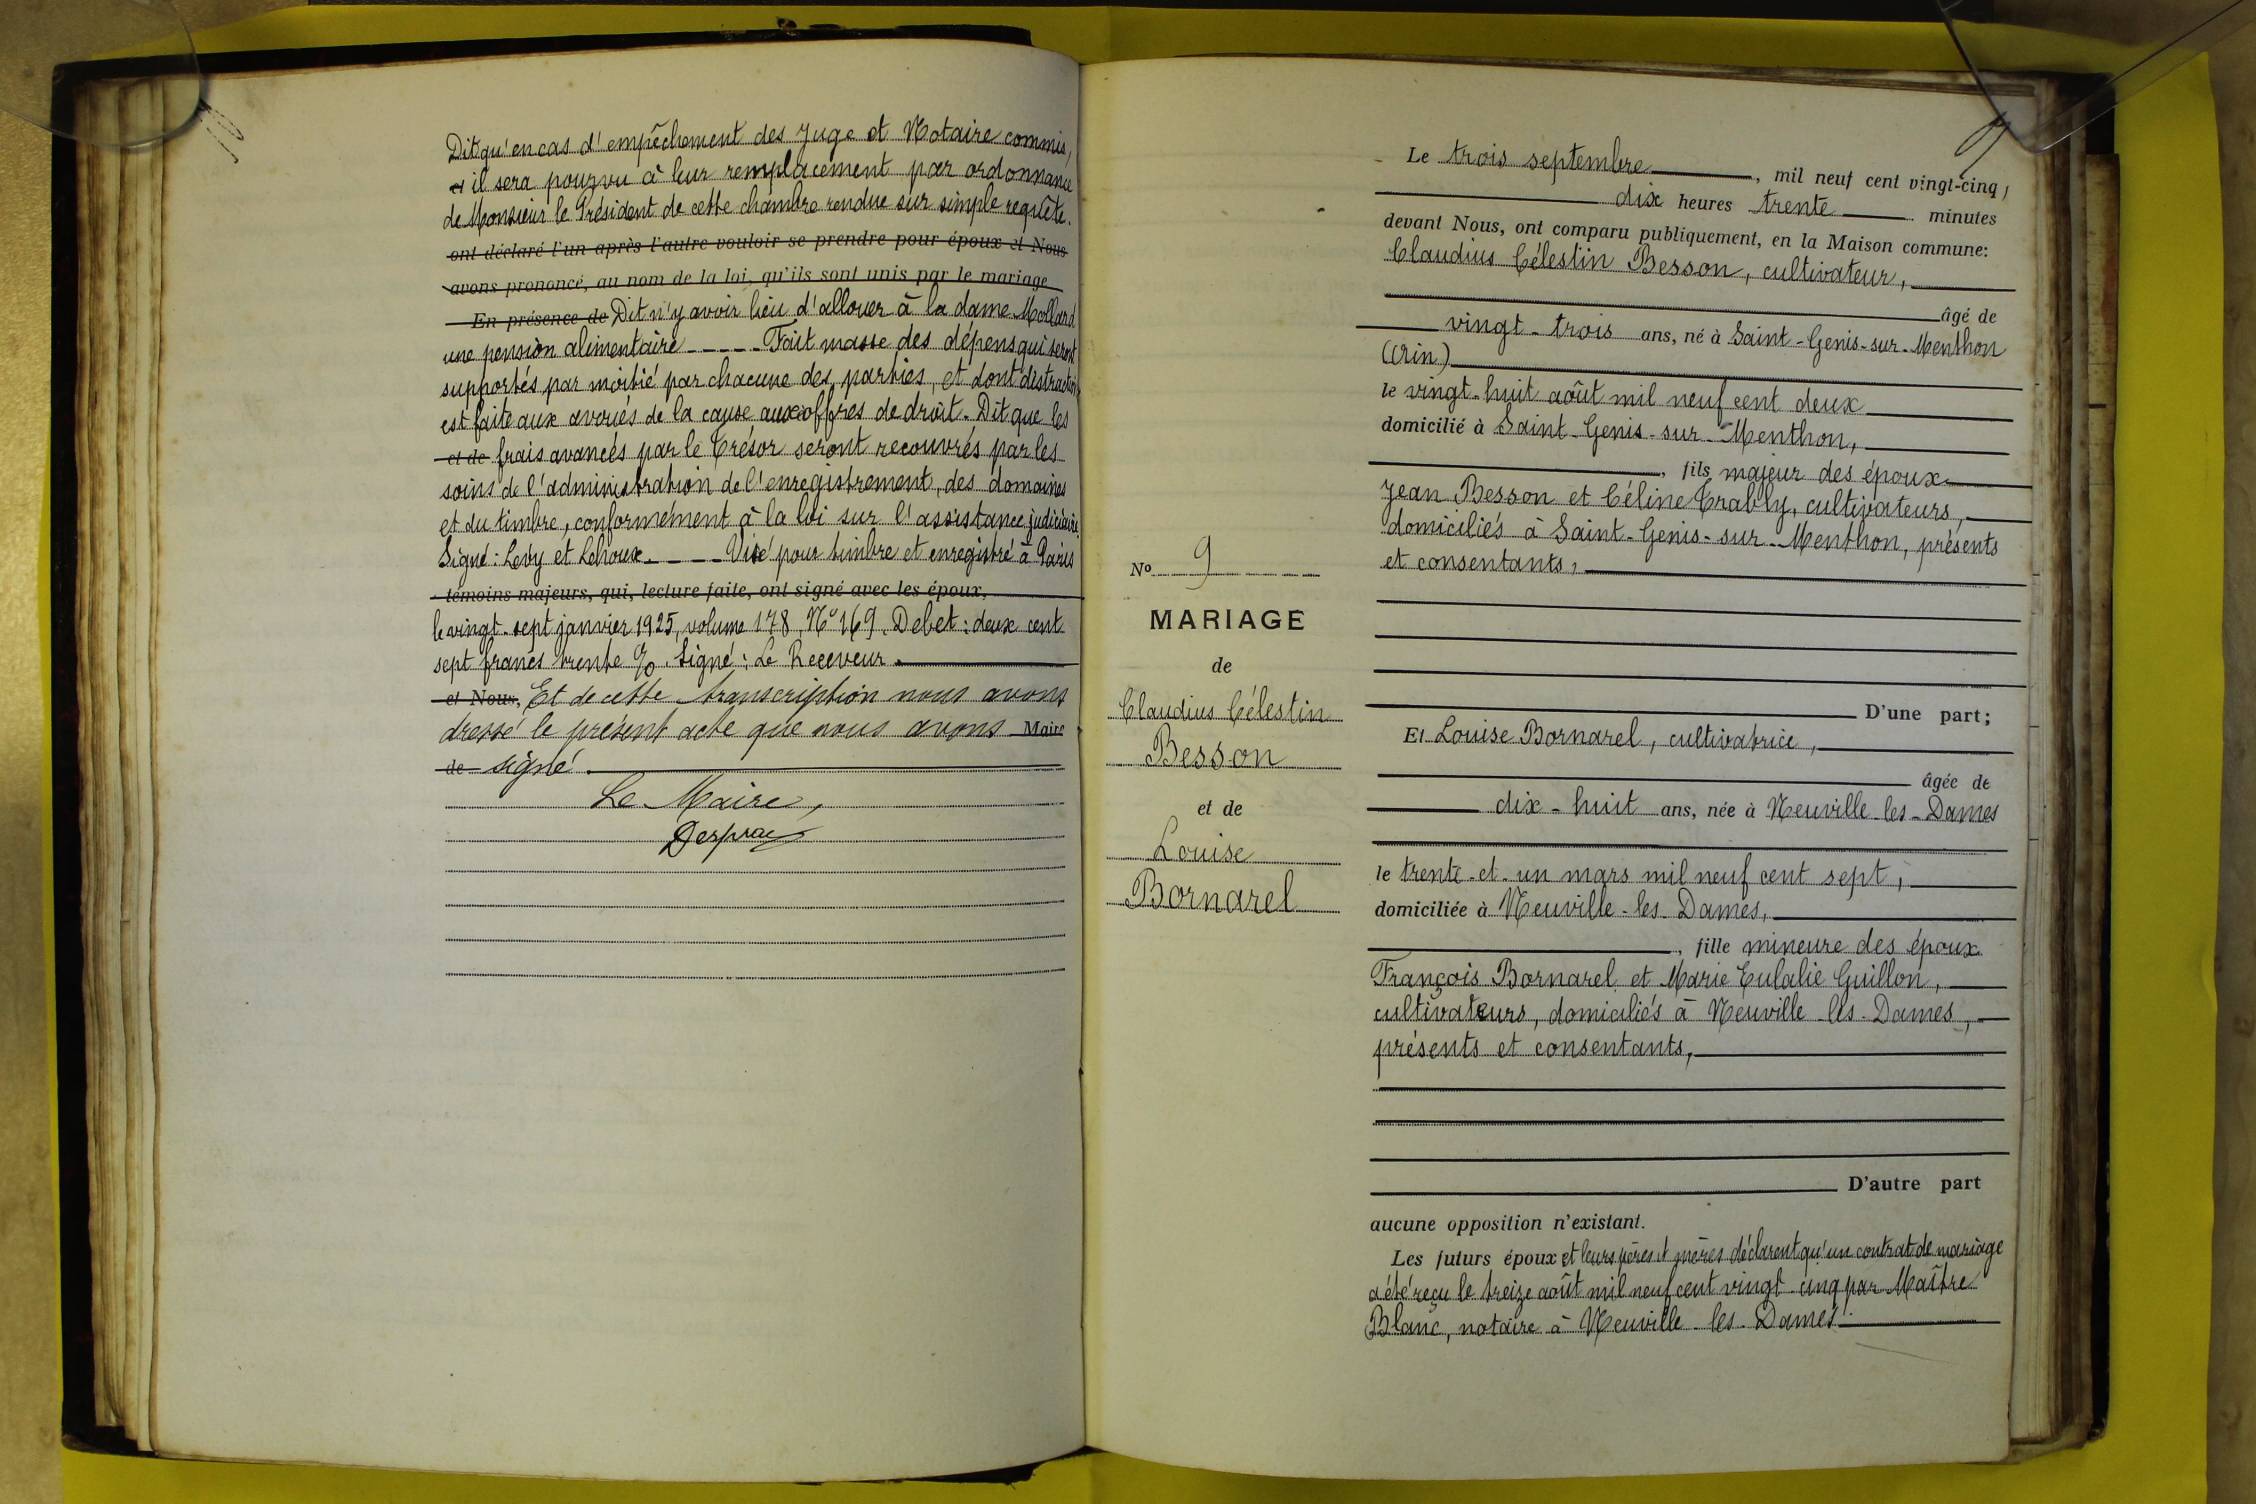 Dit qu'en cas d'empêchement des Juge et Notaire commis,
et il sera pourvu à leur remplacement par ordonnance
de Monsieur le Président de cette chambre rendue sur simple requête.
ont déclaré l'un après l'autre vouloir se prendre pour époux et Nous
avons prononcé, au nom de la loi, qu'ils sont unis par le mariage
En présence de Dit n'y avoir lieu d'allouer à la dame Mollard
une pension alimentaire ---- Fait masse des dépens qui seront
supportés par moitié par chacune des parties, et dont distraction
est faite aux avoués de la cause aux offres de droit. Dit que les
et de frais avancés par le Trésor seront recouvrés par les
soins de l'administration de l'enregistrement, des domaines
et du timbre, conformément à la loi sur l'assistance judiciaire
Signé: Levy et Lehoux ---- Visé pour timbre et enregistré à Paris
témoins majeurs, qui, lecture faite, ont signé avec les époux,
le vingt-sept janvier 1925, volume 178, N° 169. Debet: deux cent
sept francs trente %. Signé: Le Receveur.
et Nous, Et de cette transcription nous avons
dressé le présent acte que nous avons Maire
de signé.
Le Maire,
9
Le trois septembre, mil neuf cent vingt-cinq,
dix heures trente minutes
devant Nous, ont comparu publiquement, en la Maison commune:
Claudius Célestin Besson, cultivateur,
âgé de
vingt-trois ans, né à Saint-Genis-sur-Menthon
(Ain)
le vingt-huit août mil neuf cent deux
domicilié à Saint-Genis-sur-Menthon,
, fils majeur des époux
Jean Besson et Céline Crably, cultivateurs,
domiciliés à Saint-Genis-sur-Menthon, présents
et consentants,
D'une part;
Et Louise Bornarel, cultivatrice,
âgée de
dix-huit ans, née à Neuville-les-Dames
le trente-et-un mars mil neuf cent sept,
domiciliée à Neuville-les-Dames,
, fille mineure des époux
François Bornarel et Marie Eulalie Guillon,
cultivateurs, domiciliés à Neuville-les-Dames,
présents et consentants,
D'autre part
aucune opposition n'existant.
Les futurs époux et leurs pères et mères déclarent qu'un contrat de mariage
a été reçu le treize août mil neuf cent vingt-cinq par Maître
Blanc, notaire à Neuville-les-Dames.
N° 9
MARIAGE
de
Claudius Célestin
Besson
et de
Louise
Bornarel